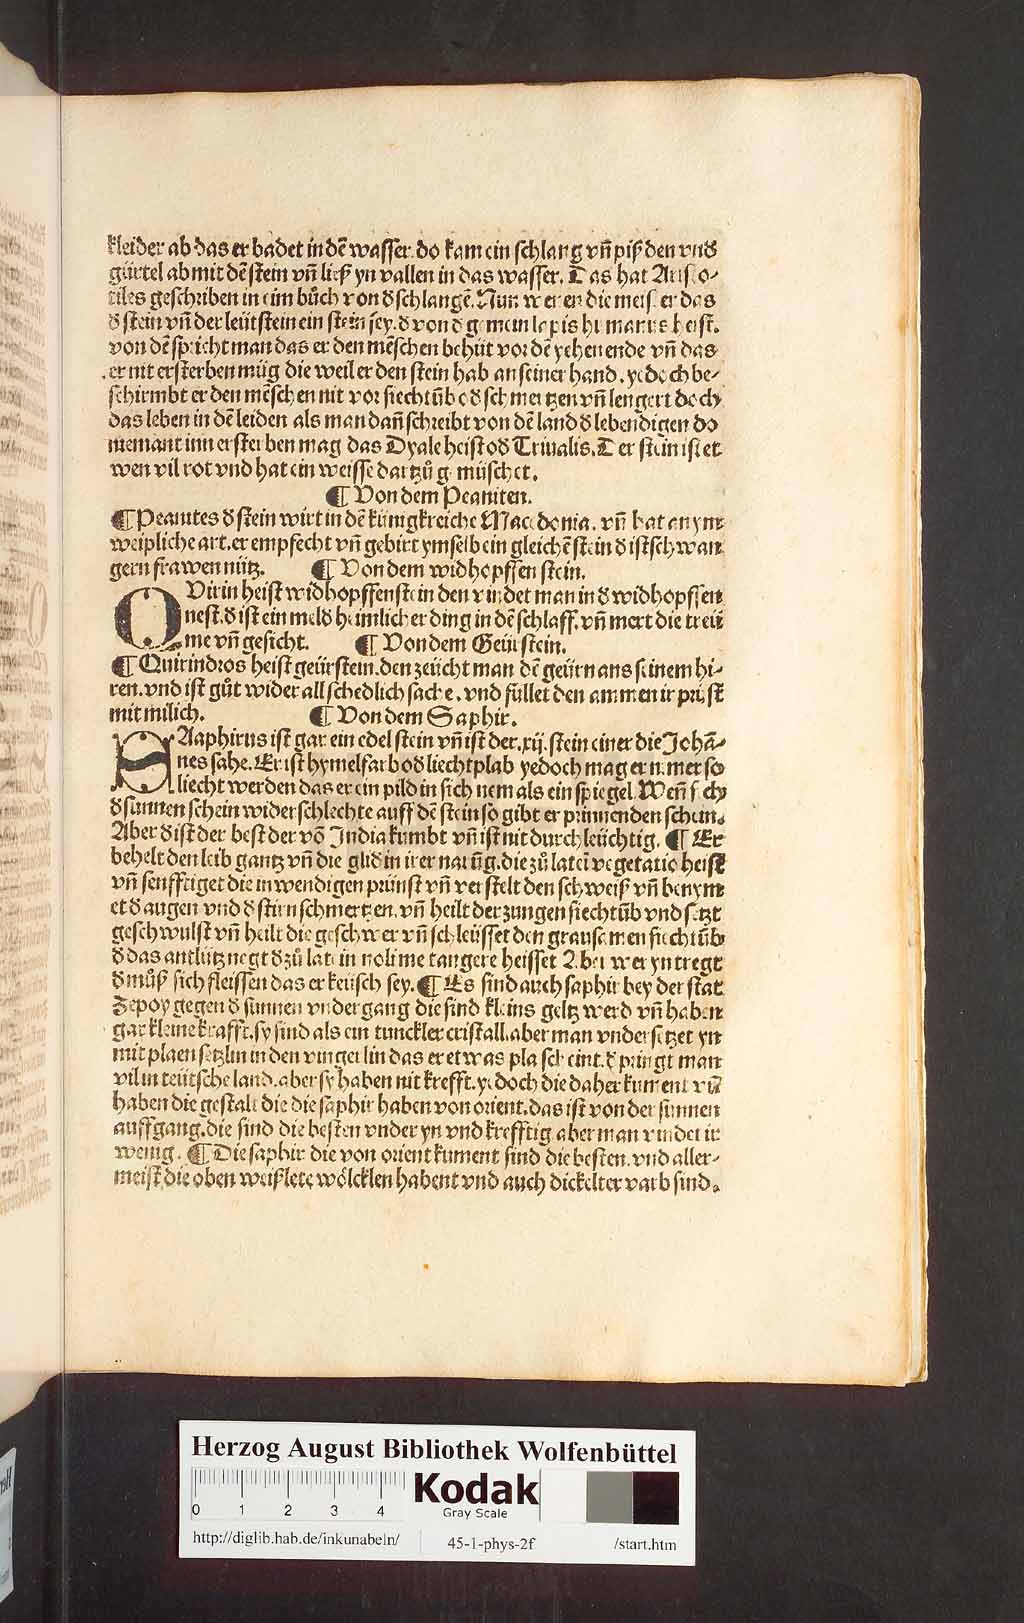 kleider ab das er badet in dē wasser. do kam ein schlang vn̄ piß den vnd
gürtel ab mit dē stein vn̄ ließ yn vallen in das wasser. Das hat Aristo-
tiles geschriben in eim bůch von d schlangē. Nun weren die meister das
d stein vn̄ der leütstein ein stein sey. d von d gemein lapis humanus heist.
von dē spricht man das er den mēschen behüt vor dē yehen ende vn̄ das
er nit ersterben müg die weil er den stein hab an seiner hand. yedoch be-
schirmbt er den mēschen nit vor siechtūb od schmertzen vn̄ lengert doch
das leben in dē leiden als man dan̄ schreibt von dē land d lebendigen do
niemant inn ersterben mag das Dyale heist od Triualis. Der stein ist et
wen vil rot vnd hat ein weisse dartzů gemüschet.
¶ Von dem Peaniten.
¶ Peanites d stein wirt in dē künigkreiche Macedonia. vn̄ hat an ym
weipliche art. er empfecht vn̄ gebirt ym selb ein gleichē stein d ist schwan
gern frawen nütz. ¶ Von dem widhopffen stein.
QVirin heist widhopffenstein den vindet man in d widhopffen
nest. d ist ein meld heimlicher ding in dē schlaff. vn̄ mert die treü
me vn̄ gesicht. ¶ Von dem Geürstein.
¶ Quirindros heist geürstein. den zeücht man dē geürn aus seinem hi-
ren. vnd ist gůt wider all schedlich sache. vnd füllet den ammen ir prüst
mit milich. ¶ Von dem Saphir.
SAaphirus ist gar ein edel stein vn̄ ist der .xij. stein einer die Johā-
nes sahe. Er ist hymelfarb od liechtplab yedoch mag er nimer so
liecht werden das er ein pild in sich nem als ein spiegel. Wen̄ sich
d sunnen schein widerschlechte auff dē stein so gibt er prinnenden schein.
Aber d ist der best der vō India kumbt vn̄ ist nit durchleüchtig. ¶ Er
behelt den leib gantz vn̄ die glid in irer narūg. die zů latei vegetatio heist
vn̄ senfftiget die inwendigen prünst vn̄ verstelt den schweiß vn̄ benym
et d augen vnd d stirn schmertzen. vn̄ heilt der zungen siechtūb vnd setzt
geschwulst vn̄ heilt die geschwer vn̄ schleüsset den grausamen siechtūb
d das antlütz negt d zů latein noli me tangere heisset Aber wer yn tregt
d můß sich fleissen das er keüsch sey. ¶ Es sind auch saphir bey der stat
Zepoy gegen d sunnen vndergang die sind kleins geltz werd vn̄ haben
gar kleine krafft. sy sind als ein tunckler cristall. aber man vndersetzet yn
mit plaen setzlin in den vingerlin das er etwas pla scheint. d pringt man
vil in teütsche land. aber sy haben nit krefft. yedoch die daher kument vn̄
haben die gestalt die die saphir haben von orient. das ist von der sunnen
auffgang. die sind die besten vnder yn vnd krefftig aber man vindet ir
wenig. ¶ Die saphir die von orient kument sind die besten. vnd aller-
meist die oben weißlete wölcklen habent vnd auch dickelter varb sind.
Herzog August Bibliothek Wolfenbüttel
0 1 2 3 4
Kodak
Gray Scale
http://diglib.hab.de/inkunabeln/ 45-1-phys-2f /start.htm